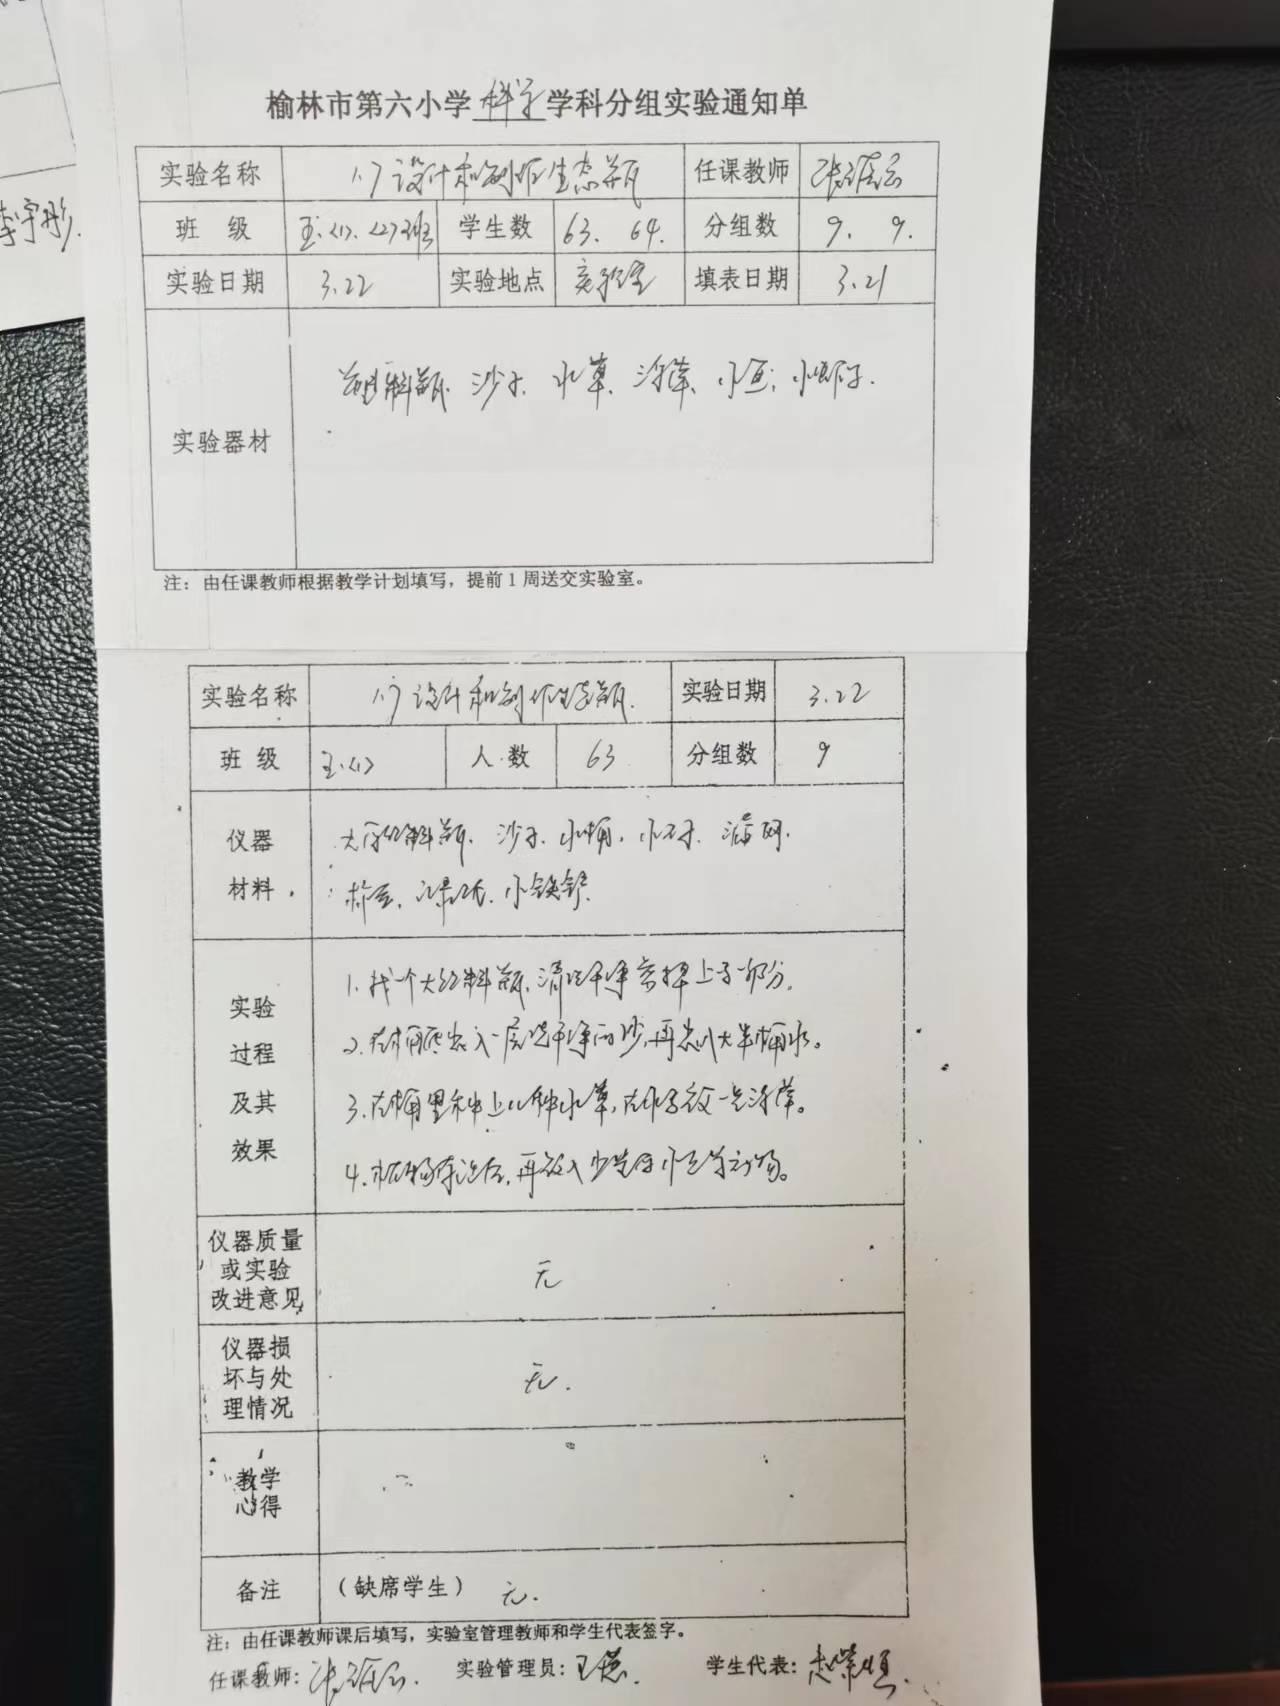 李宇彤
榆林市第六小学科学学科分组实验通知单
实验名称 1.7设计和制作生态瓶 任课教师
班 级 五.<1>.<2>班 学生数 63. 64. 分组数 9. 9.
实验日期 3.22 实验地点 实验室 填表日期 3.21
实验器材 塑料瓶、沙子、水草、浮萍、小鱼、小虾.
注：由任课教师根据教学计划填写，提前1周送交实验室。
实验名称 1.7设计和制作生态瓶. 实验日期 3.22
班 级 五.<1> 人 数 63 分组数 9
仪器
材料
沙子、水桶、小石子、滤网.
小铁铲.
实验
过程
及其
效果
1.找一个大饮料瓶,清洗干净剪掉上方一部分。
2.在桶底装入一层洗干净的沙,再装入大半桶水。
3.在桶里种上几种水草,在水面放一些浮萍。
4.植物存活后,再放入少量的小鱼等动物。
仪器质量
或实验
改进意见
无
仪器损
坏与处
理情况
无.
教学
心得
备注 （缺席学生） 无.
注：由任课教师课后填写，实验室管理教师和学生代表签字。
任课教师： 实验管理员： 学生代表：